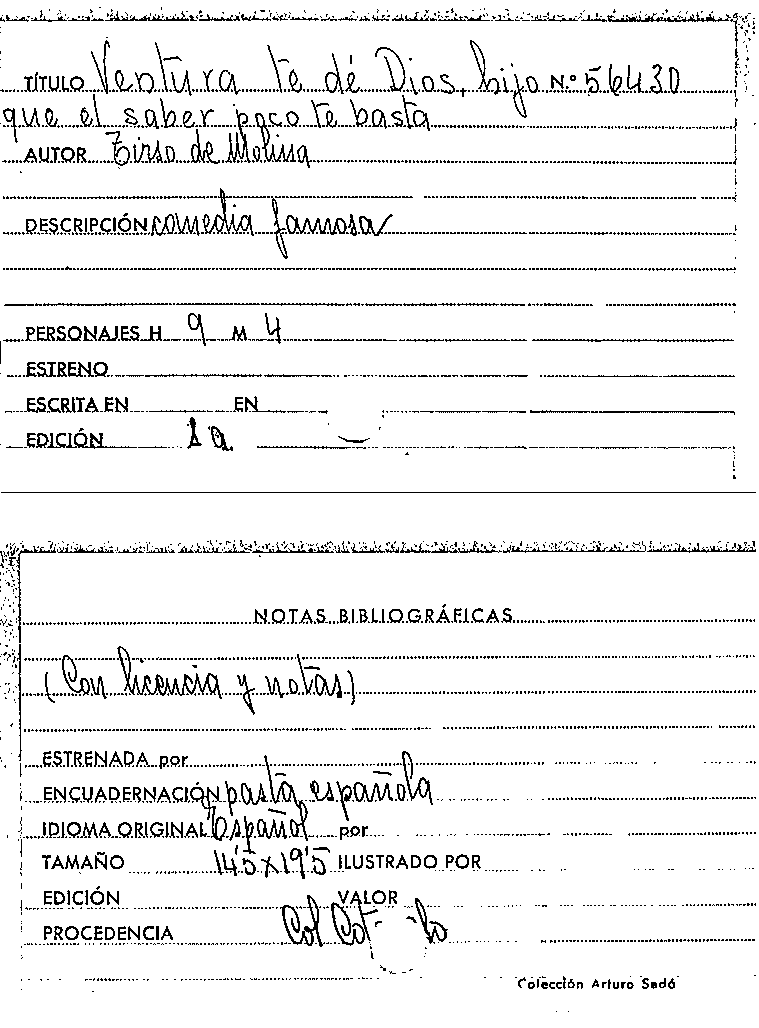 TÍTULO Ventura te dé Dios, hijo N.º 56430
que el saber poco te basta
AUTOR Tirso de Molina
DESCRIPCIÓN comedia famosa
PERSONAJES H 9 M 4
ESTRENO
ESCRITA EN EN
EDICIÓN 1a
NOTAS BIBLIOGRÁFICAS
(Con licencia y notas)
ESTRENADA por
ENCUADERNACIÓN pasta española
IDIOMA ORIGINAL Español por
TAMAÑO 14'5 x 19'5 ILUSTRADO POR
EDICIÓN VALOR
PROCEDENCIA Col
Colección Arturo Sedó